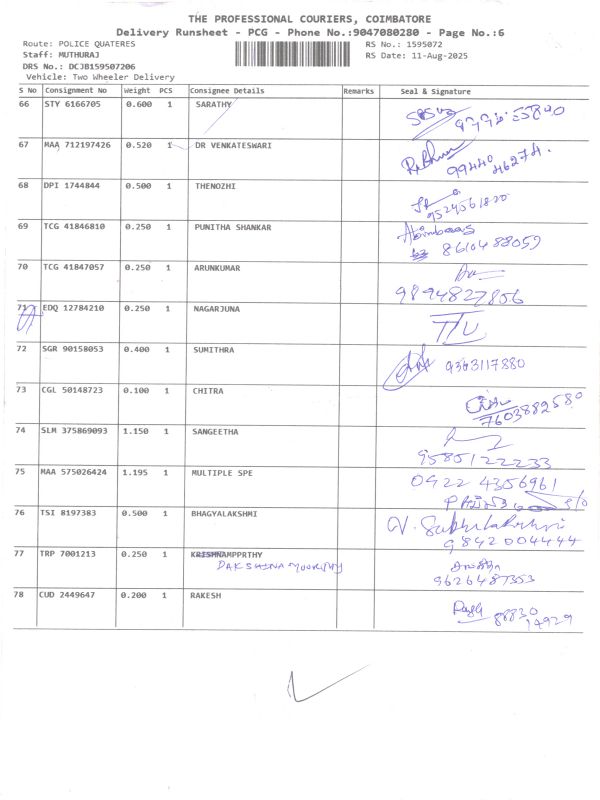 THE PROFESSIONAL COURIERS, COIMBATORE
Delivery Runsheet - PCG - Phone No.:9047080280 - Page No.:6
Route: POLICE QUATERES RS No.: 1595072
Staff: MUTHURAJ RS Date: 11-Aug-2025
DRS No.: DCJB159507206
Vehicle: Two Wheeler Delivery
S No Consignment No Weight PCS Consignee Details Remarks Seal & Signature
66 STY 6166705 0.600 1 SARATHY
67 MAA 712197426 0.520 1 DR VENKATESWARI
99440 46274.
68 DPI 1744844 0.500 1 THENOZHI
9524561820
69 TCG 41846810 0.250 1 PUNITHA SHANKAR
8610488059
70 TCG 41847057 0.250 1 ARUNKUMAR
9894827856
71 EDQ 12784210 0.250 1 NAGARJUNA
72 SGR 90158053 0.400 1 SUMITHRA
9363117880
73 CGL 50148723 0.100 1 CHITRA
7603882580
74 SLM 375869093 1.150 1 SANGEETHA
9585122233
75 MAA 575026424 1.195 1 MULTIPLE SPE
0422 4356961
76 TSI 8197383 0.500 1 BHAGYALAKSHMI
9842004444
77 TRP 7001213 0.250 1 KRISHNAMPPRTHY
DAKSHINA MOORTHY
9626487353
78 CUD 2449647 0.200 1 RAKESH
88830
14929